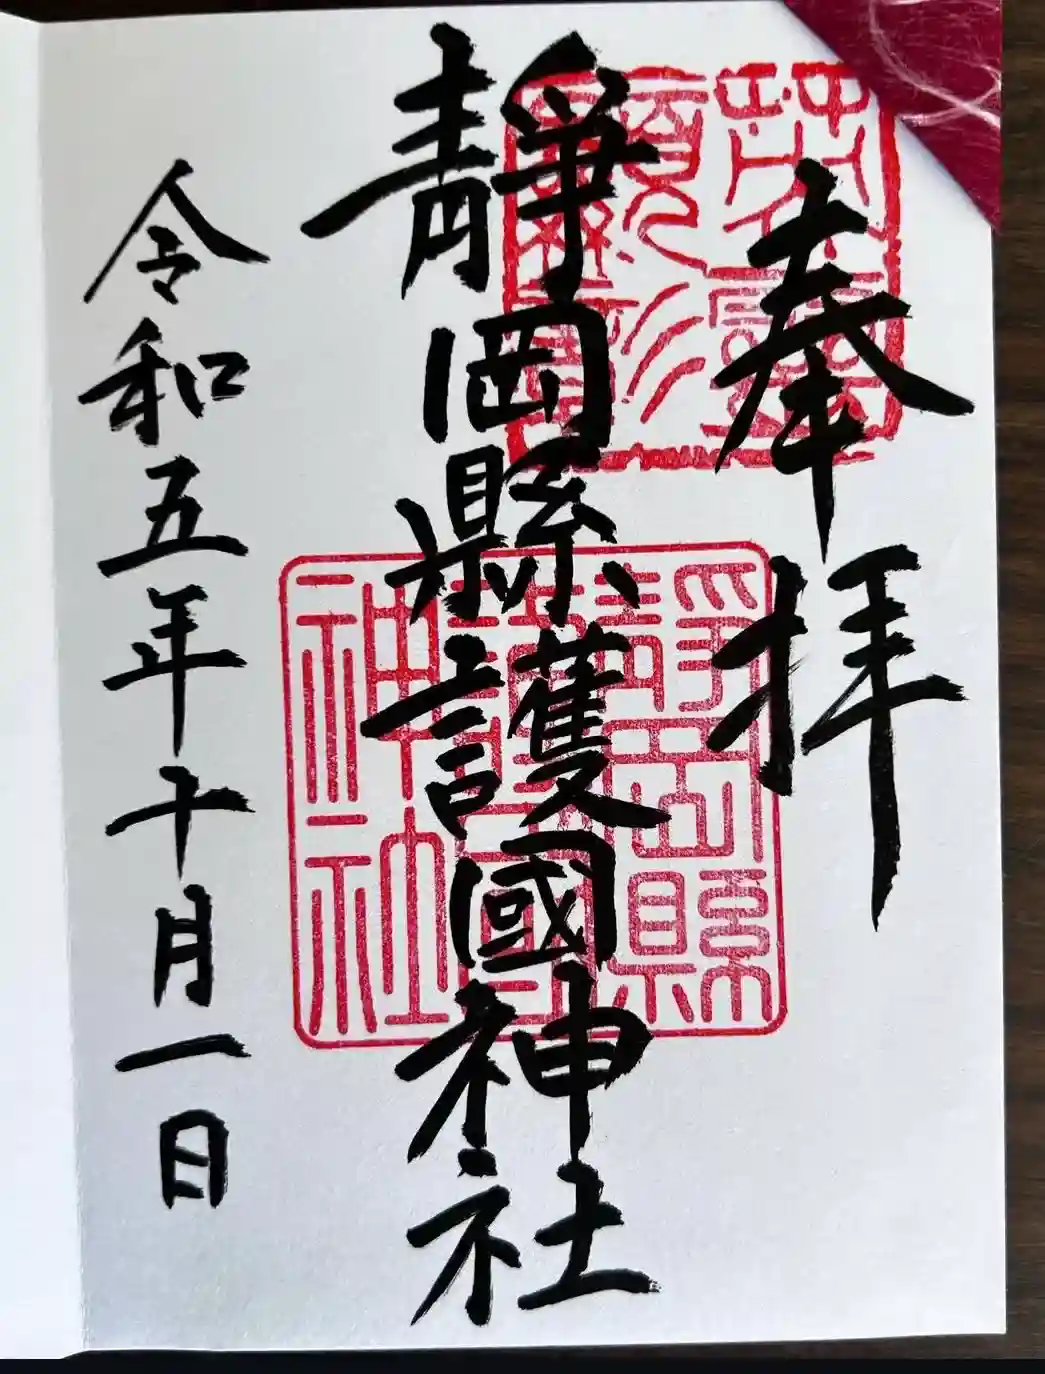 奉拝
英靈
顯彰
靜岡縣護國神社
靜岡縣
護國
神社
令和五年十月一日